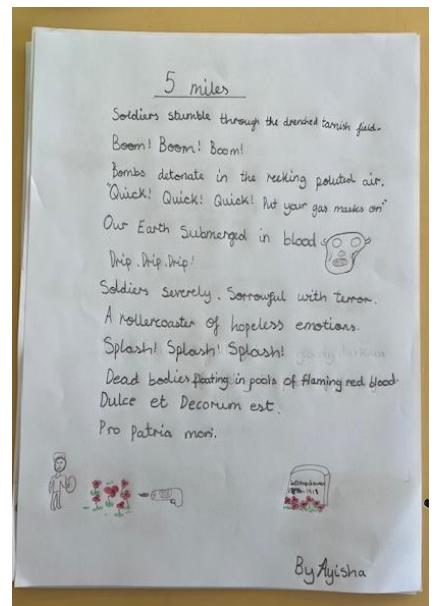 5 miles
Soldiers stumble through the drenched tarnish field.
Boom! Boom! Boom!
Bombs detonate in the reeking poluted air.
"Quick! Quick! Quick! Put your gas masks on"
Our Earth Submerged in blood
Drip. Drip. Drip!
Soldiers severely. Sorrowful with terror.
A rollercoaster of hopeless emotions.
Splash! Splash! Splash!
Dead bodies floating in pools of flaming red blood.
Dulce et Decorum est.
Pro patria mori.
By Ayisha